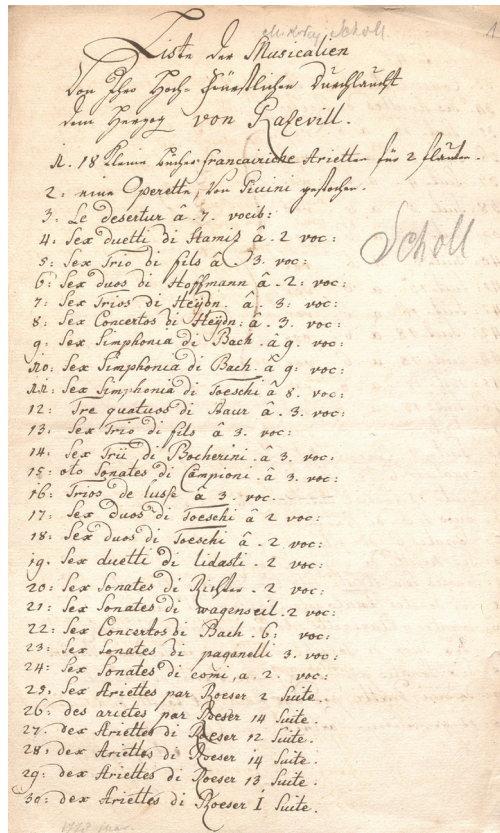 Scholl 1
Liste der Musicalien
Von Ihro Hoch-Fürstlichen Durchlaucht
dem Herzog von Razevill.
N. 18 kleine bucher francairiche Arietten für 2 flauten.
2: eine Operette, Von Picini gestochen.
3: Le desertur â. 7. vocib:
4: Sex duetti di Stamiz â. 2 voc:
Scholl
5: Sex Trio di fils â 3. voc:
6: Sex duos di Hoffmann â. 2: voc:
7: Sex Trios di Heÿdn. â. 3: voc:
8: Sex Concertos di Heÿdn: â. 3. voc:
9: Sex Simphonia di Bach. â 9. voc:
10: Sex Simphonia di Bach. â 9: voc:
11: Sex Simphonia di Toeschi â 8. voc:
12: Tre quatuos di Baur â. 3. voc:
13. Sex Trio di fils â 3. voc:
14. Sex Trii di Bocherini. â 3. voc:
15: oto Sonates di Campioni. â 3. voc:
16: Trios de lusse â 3. voc..
17: Sex duos di Toeschi â 2 voc:
18: Sex duos di Toeschi â. 2 voc:
19. Sex duetti di lidasti. 2 voc:
20: Sex Sonates di Richter. 2 voc:
21: Sex Sonates di wagenseil. 2 voc:
22: Sex Concertos di Bach. 6: voc:
23: Sex Sonates di paganelli 3. voc:
24: Sex Sonates di comi, a. 2. voc:
25: Sex Ariettes par Roeser 2 Suite.
26: des arietes par Roeser 14 Suite.
27. dex Ariettes di Roeser 12 Suite.
28: dex Ariettes di Roeser 14 Suite.
29: dex Ariettes di Roeser 13 Suite.
30: dex Ariettes di Roeser I Suite.